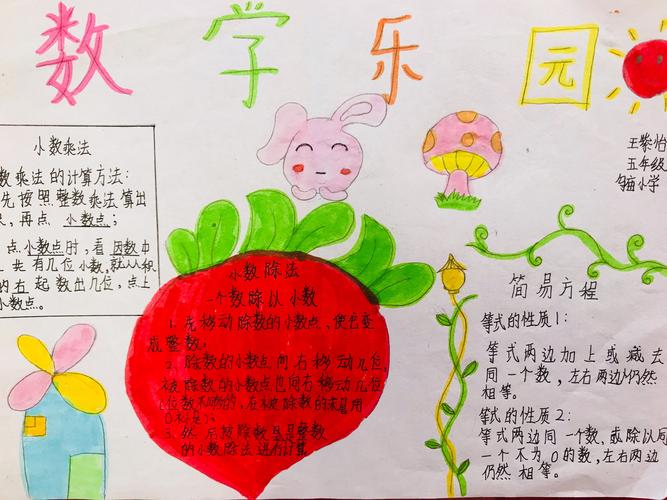 数学乐园
小数乘法
数乘法的计算方法:
先按照整数乘法算出
再点 小数点;
点小数点时,看因数中
共有几位小数,就从积
的右起数出几位,点上
小数点。
小数除法
一个数除以小数
1. 先移动除数的小数点,使它变
成整数;
2. 除数的小数点向右移动几位,
被除数的小数点也向右移动几位
位数不够的,在被除数的末尾用
0补足);
3. 然后按除数是整数
的小数除法进行计算
五年级
小学
简易方程
等式的性质1:
等式两边加上或减去
同一个数,左右两边仍然
相等。
等式的性质2:
等式两边同一个数,或除以同
一个不为0的数,左右两边
仍然相等。